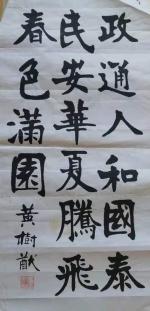 政通人和國泰
民安華夏騰飛
春色滿園
黄樹猷